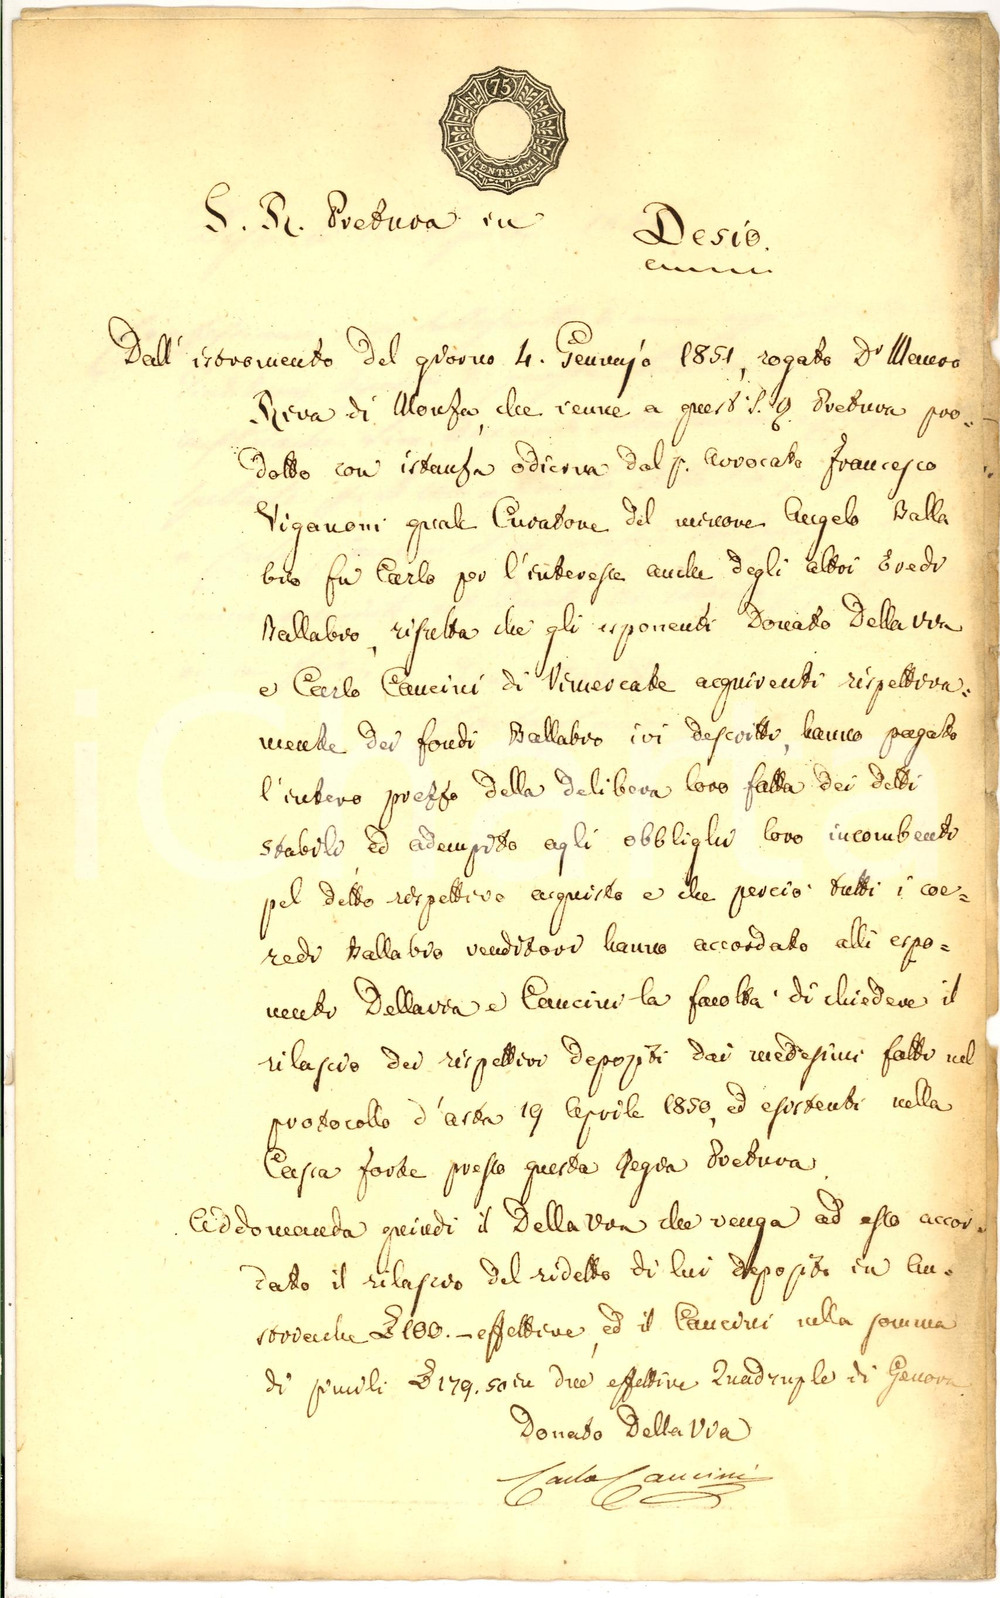 75
CENTESIMI
I. R. Pretura in Desio.
Dall' istromento del giorno 4. Gennajo 1851, rogato Dr Mauro
Riva di Monza, che venne a quest' I. R. Pretura pro-
dotto con istanza odierna dal s. Avvocato Francesco
Viganoni quale Curatore del minore Angelo Balla
bio fu Carlo per l'interesse anche degli altri Eredi
Ballabio, risulta che gli esponenti Donato Della Via
e Carlo Cancini di Vimercate acquirenti rispettiva=
mente dei fondi Ballabio ivi descritti, hanno pagato
l'intero prezzo della delibera loro fatta dei detti
stabili, ed adempito agli obblighi loro incombenti
pel detto rispettivo acquisto e che perciò tutti i coe=
redi Ballabio venditori hanno accordato alli espo=
nenti Dellavia e Cancini la facoltà di chiedere il
rilascio dei rispettivi depositi dai medesimi fatti nel
protocollo d'asta 19 Aprile 1850, ed esistenti nella
Cassa forte presso questa Regia Pretura
Addomanda quindi il Della Via che venga ad esso accor-
dato il rilascio del ridetto di lui deposito in Au-
striache £ 100. – effettive, ed il Cancini nella somma
di simili £ 179.50 in due effettive Quadruple di Genova
Donato Della Via
Carlo Cancini